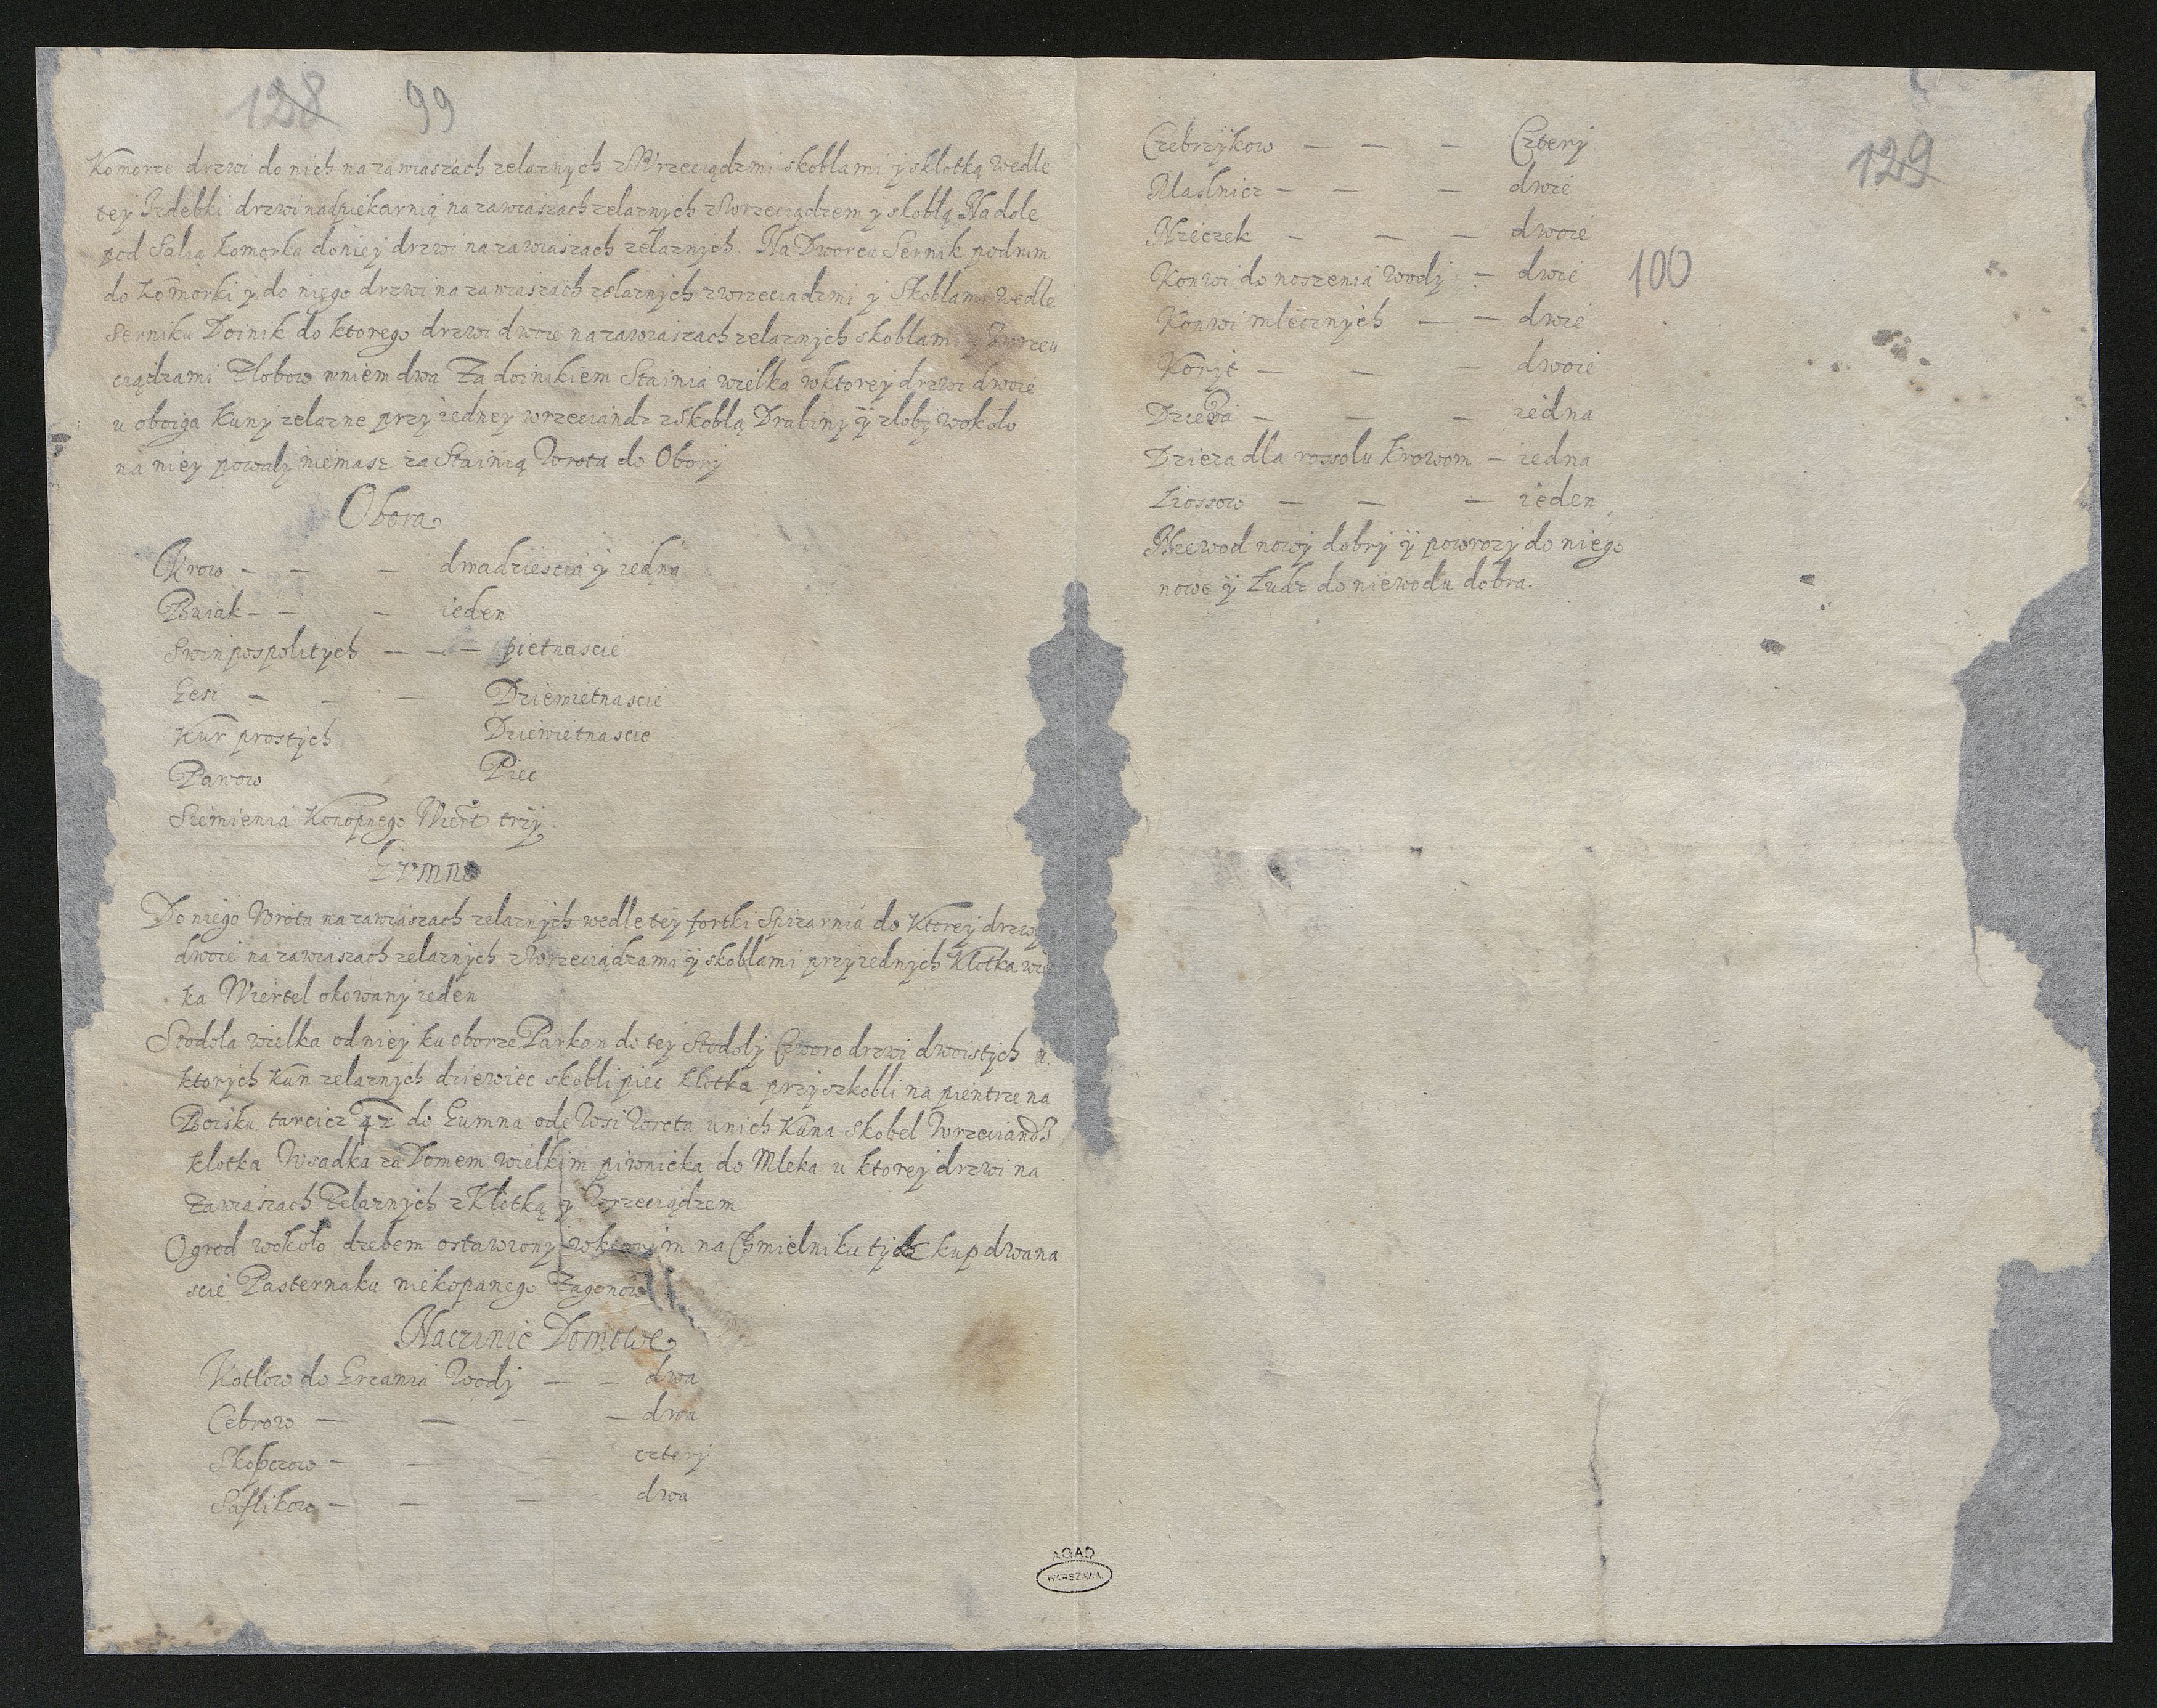 128 99
Komorze drzwi do nich na zawiaszach zelaznych z Wrzeciądzmi skoblami y sklotką wedle
tey Izdebki drzwi nad piekarnią na zawiaszach zelaznych z Wrzeciądzem y skoblą Na dole
pod Salią komorka do niey drzwi na zawiaszach zelaznych. Na Dworcu Sernik pod nim
do komorki y do niego drzwi na zawiaszach zelaznych z wrzeciadzmi y Skoblami wedle
Serniku Doinik do ktorego drzwi dwoie na zawiaszach zelaznych skoblami y Zwrzeu
ciądzami Zlobow w niem dwa Za doinikiem Stainia wielka w ktorey drzwi dwoie
u oboiga Kuny zelazne przy iedney wrzeciandz z Skoblą Drabiny ÿ zloby wokoło
na niey powały niemasz za Stainią Wrota do Obory
Obora
Krow — — — dwadziescia y iedna
Buiak — — — ieden
Swin pospolitych — — — pietnascie
Gesi — — — Dziewietnascie
Kur prostych Dziewietnascie
Pawow Piec
Siemienia Konopnego Wiert trzy
Gumno
Do niego Wrota na zawiaszach zelaznych wedle tey fortki Spizarnia do Ktorey drzwy
dwoie na zawiaszach zelaznych z Wrzeciądzami ÿ skoblami przy iednych Klotka wie
ka Wiertel okowany ieden
Stodola wielka od niey ku oborze Parkan do tey Stodoly Czworo drzwi dwoistych u
ktorych Kun zelaznych dziewiec skobli piec klotka przy szkobli na pientrze na
Boisku tarcicz 42 do Gumna ode Wsi Wrota u nich Kuna Skobel Wrzeciandz
klotka Wsadka za Domem wielkim piwnicka do Mleka u ktorey drzwi na
Zawiaszach Zelaznych z Klotką y Wrzeciądzem
Ogrod wokoło dzebem ostawiony w ktorym na Chmielniku tych kup dwana
scie Pasternaku niekopanego Zagonow
Naczinie Domowe
Kotlow do Grzania Wody — — dwa
Cebrow — — — — dwa
Skopczow — — — cztery
Saflikow — — — dwa
129
100
Czebrzykow — — — Cztery
Maslnicz — — — dwie
Nieczek — — — dwoie
Konwi do noszenia Wody — dwie
Konwi mlecznych — — dwie
Koryt — — — dwoie
Dzieza — — — iedna
Dzieza dla rossolu Krowom — iedna
Liossow — — — ieden
Niewod nowy dobry ÿ powrozy do niego
nowe ÿ Łudz do niewodu dobra.
AGAD
WARSZAWA